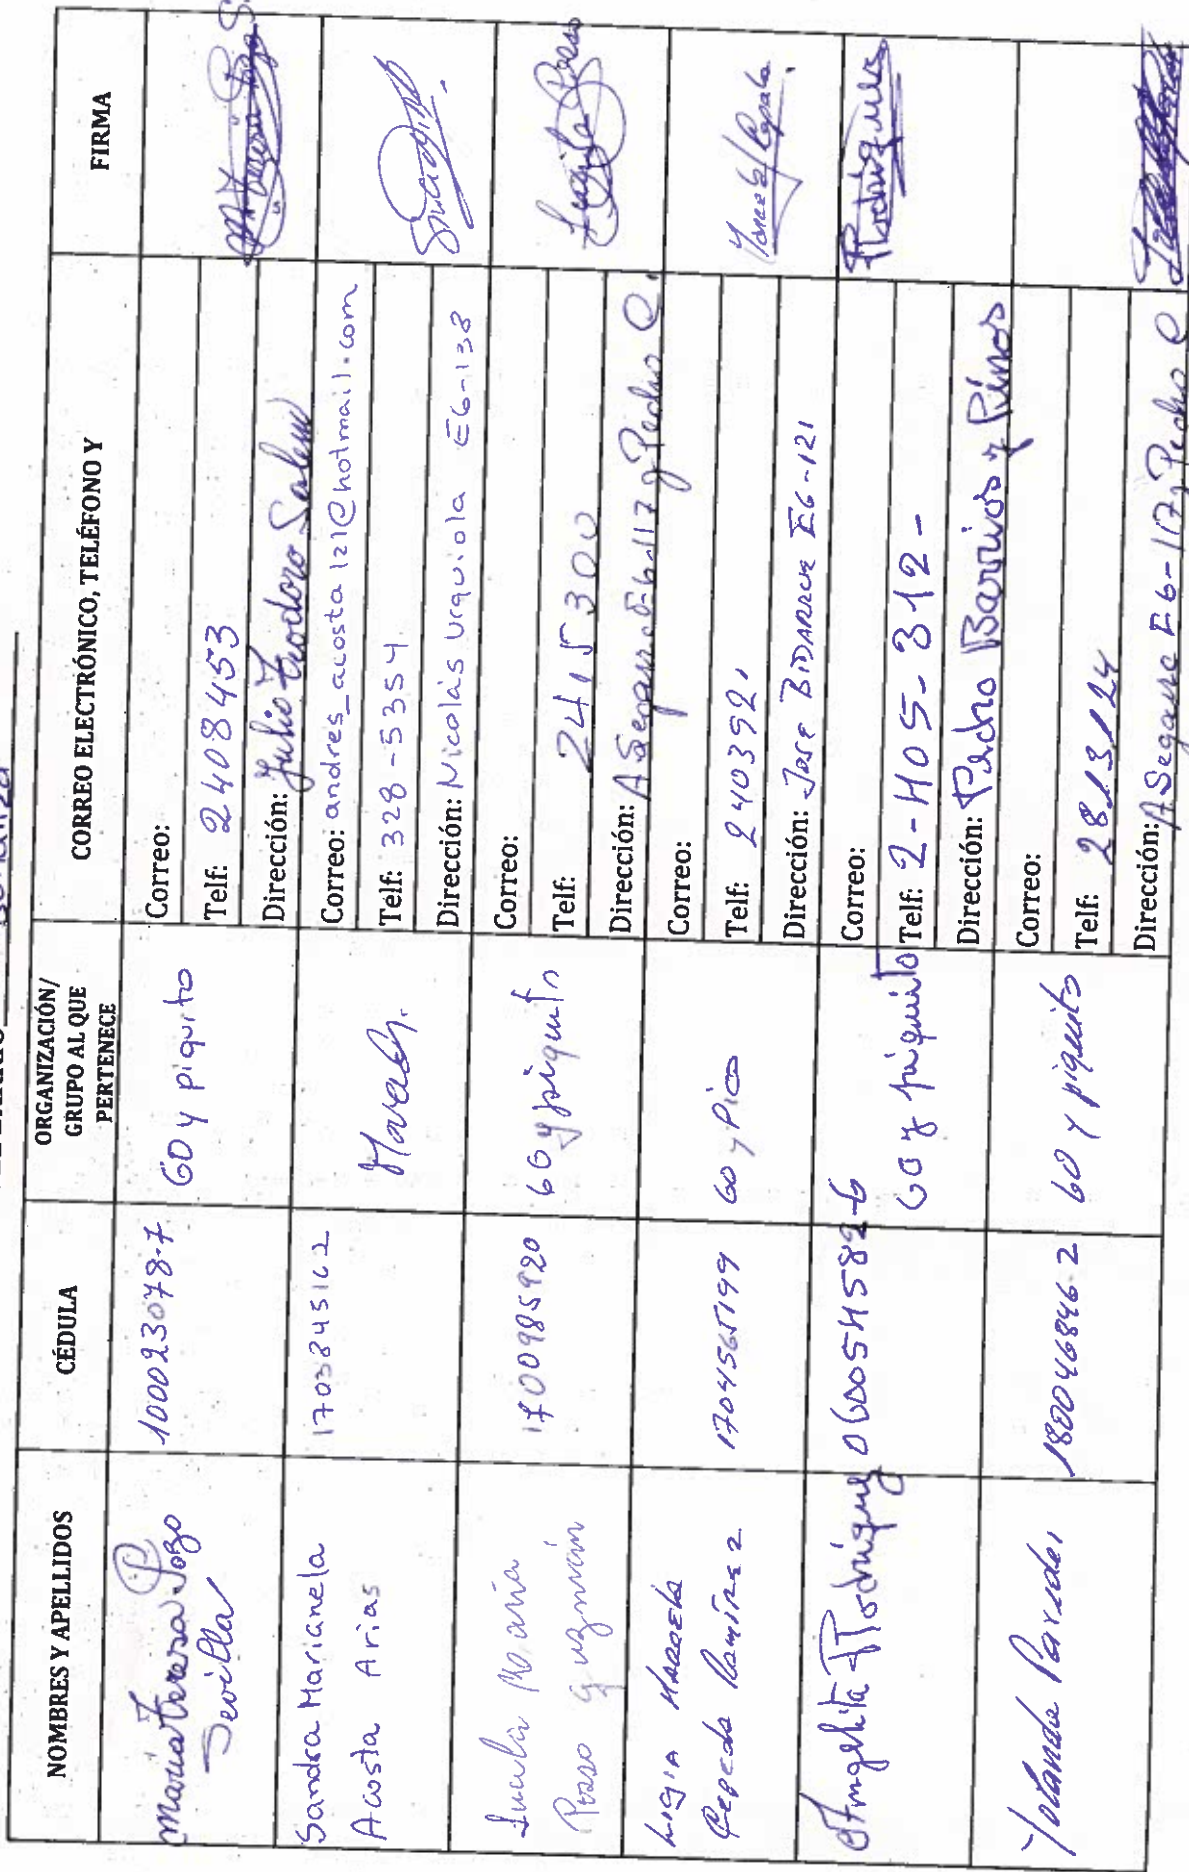 NOMBRES Y APELLIDOS
CÉDULA
ORGANIZACIÓN/
GRUPO AL QUE
PERTENECE
CORREO ELECTRÓNICO, TELÉFONO Y
FIRMA
Maria Teresa Pozo
Sevilla
100023078-7
60 y piquito
Correo:
Telf: 2408453
Dirección: Julio Teodoro Salem
Sandra Marianela
Acosta Arias
1703845162
Correo: andres_acosta121@hotmail.com
Telf: 328-5354
Dirección: Nicolás Urquiola E6-138
Lucila María
Proaso Guzmán
1700985920
60 y piquito
Correo:
Telf: 2415300
Dirección: A Segura E6-117 y Pedro Q.
Ligia Marcela
Cepeda Ramírez
1704565199
60 y Pico
Correo:
Telf: 2403921
Dirección: Jose BIDARRUE E6-121
Angelita Rodriguez
060054582-6
60 y piquito
Correo:
Telf: 2-405-312-
Dirección: Pedro Barrios y Pinos
Rodriguez
Yolanda Paredes
180046846-2
60 y piquito
Correo:
Telf: 2813124
Dirección: A Segura E6-117 y Pedro Q